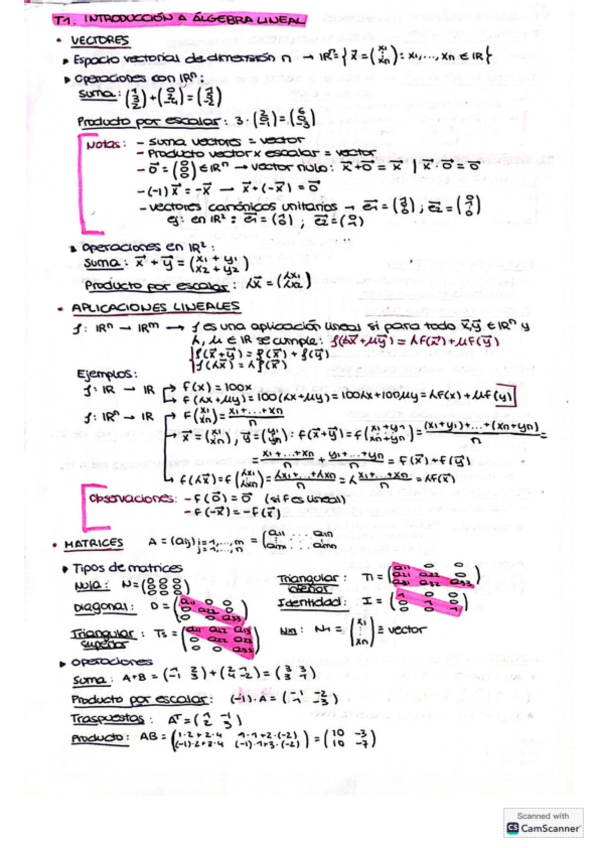 T1. INTRODUCCIÓN A ÁLGEBRA LINEAL
• VECTORES
▸ Espacio vectorial de dimensión n → ℝⁿ = { x⃗ = (x₁ ⋮ xₙ) : x₁, ..., xₙ ∈ ℝ }
▸ Operaciones con ℝⁿ:
Suma:
Producto por escalar: 3 ·
Notas: - Suma vectores = vector
- Producto vector x escalar = vector
- 0⃗ = (0 0) ∈ ℝⁿ → vector nulo: x⃗ + 0⃗ = x⃗ | x⃗ · 0⃗ = 0
- (-1) x⃗ = -x⃗ → x⃗ + (-x⃗) = 0⃗
- vectores canónicos unitarios → e⃗₁ = ; e⃗₂ =
ej: en ℝ² = e⃗₁ = ; e⃗₂ =
▸ Operaciones en ℝ²:
Suma: x⃗ + y⃗ = (x₁ + y₁ x₂ + y₂)
Producto por escalar: λx⃗ = (λx₁ λx₂)
• APLICACIONES LINEALES
f: ℝⁿ → ℝᵐ → f es una aplicación lineal si para todo x⃗, y⃗ ∈ ℝⁿ y
λ, μ ∈ ℝ se cumple: f(λx⃗ + μy⃗) = λf(x⃗) + μf(y⃗)
f(x⃗ + y⃗) = f(x⃗) + f(y⃗)
f(λx⃗) = λf(x⃗)
Ejemplos:
f: ℝ → ℝ → f(x) = 100x
→ f(λx + μy) = 100(λx + μy) = 100λx + 100μy = λf(x) + μf(y)
f: ℝⁿ → ℝ → f(x₁ xₙ) = x₁ + ... + xₙ / n
→ x⃗ = (x₁ xₙ), y⃗ = (y₁ yₙ) : f(x⃗ + y⃗) = f(x₁ + y₁ xₙ + yₙ) = (x₁ + y₁) + ... + (xₙ + yₙ) / n =
= x₁ + ... + xₙ / n + y₁ + ... + yₙ / n = f(x⃗) + f(y⃗)
→ f(λx⃗) = f(λx₁ λxₙ) = λx₁ + ... + λxₙ / n = λ x₁ + ... + xₙ / n = λf(x⃗)
Observaciones: - f(0⃗) = 0⃗ (si f es lineal)
- f(-x⃗) = -f(x⃗)
• MATRICES A = (aij) i=1,...,m j=1,...,n = (a₁₁ ... a₁ₙ aₘ₁ ... aₘₙ)
▸ Tipos de matrices
Nula: N = (0 0 0 0 0 0 0 0 0)
Triangular inferior: Ti = (a₁₁ 0 0 a₂₁ a₂₂ 0 a₃₁ a₃₂ a₃₃)
Diagonal: D = (a₁₁ 0 0 0 a₂₂ 0 0 0 a₃₃)
Identidad: I = (1 0 0 0 1 0 0 0 1)
Triangular superior: Ts = (a₁₁ a₁₂ a₁₃ 0 a₂₂ a₂₃ 0 0 a₃₃)
= (x₁ ⋮ xₙ) ≡ vector
▸ Operaciones
Suma: A+B = (1 2 -1 3) + (2 1 4 -2) = (3 3 3 1)
Producto por escalar: (-1) · A = (-1 -2 1 -3)
Traspuestas: Aᵀ = (1 -1 2 3)
Producto: AB = (1·2+2·4 1·1+2·(-2) (-1)·2+3·4 (-1)·1+3·(-2)) = (10 -3 10 -7)
Scanned with
CS CamScanner